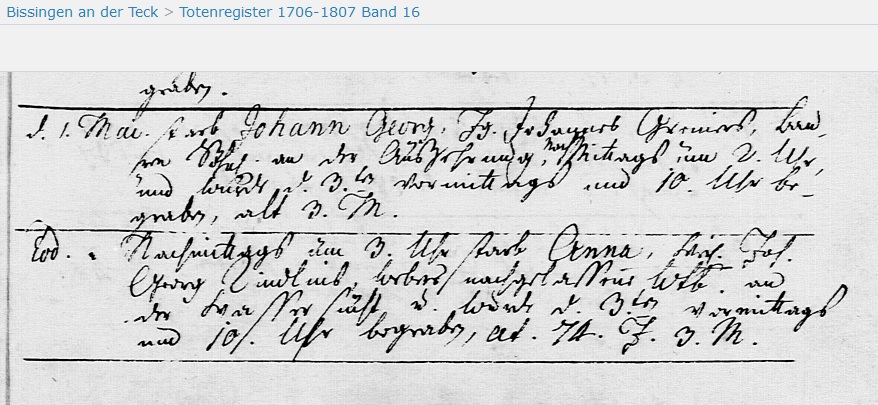 Bissingen an der Teck > Totenregister 1706-1807 Band 16
graben.
d. 1. Mai. starb Johann Georg, Jg. Johannes Greiners, Bau-
ren Söhnl. an der Auszehrung, Nachmittags um 2. Uhr,
und wurde d. 3.ten vormittags um 10. Uhr be-
graben, alt 3. M.
Eod. Nachmittags um 3. Uhr starb Anna, Joh.
Georg webers nachgelassene Wtb. an
der Wassersucht u. wurde d. 3.ten vormittags
um 10. Uhr begraben, at. 74. J. 3. M.